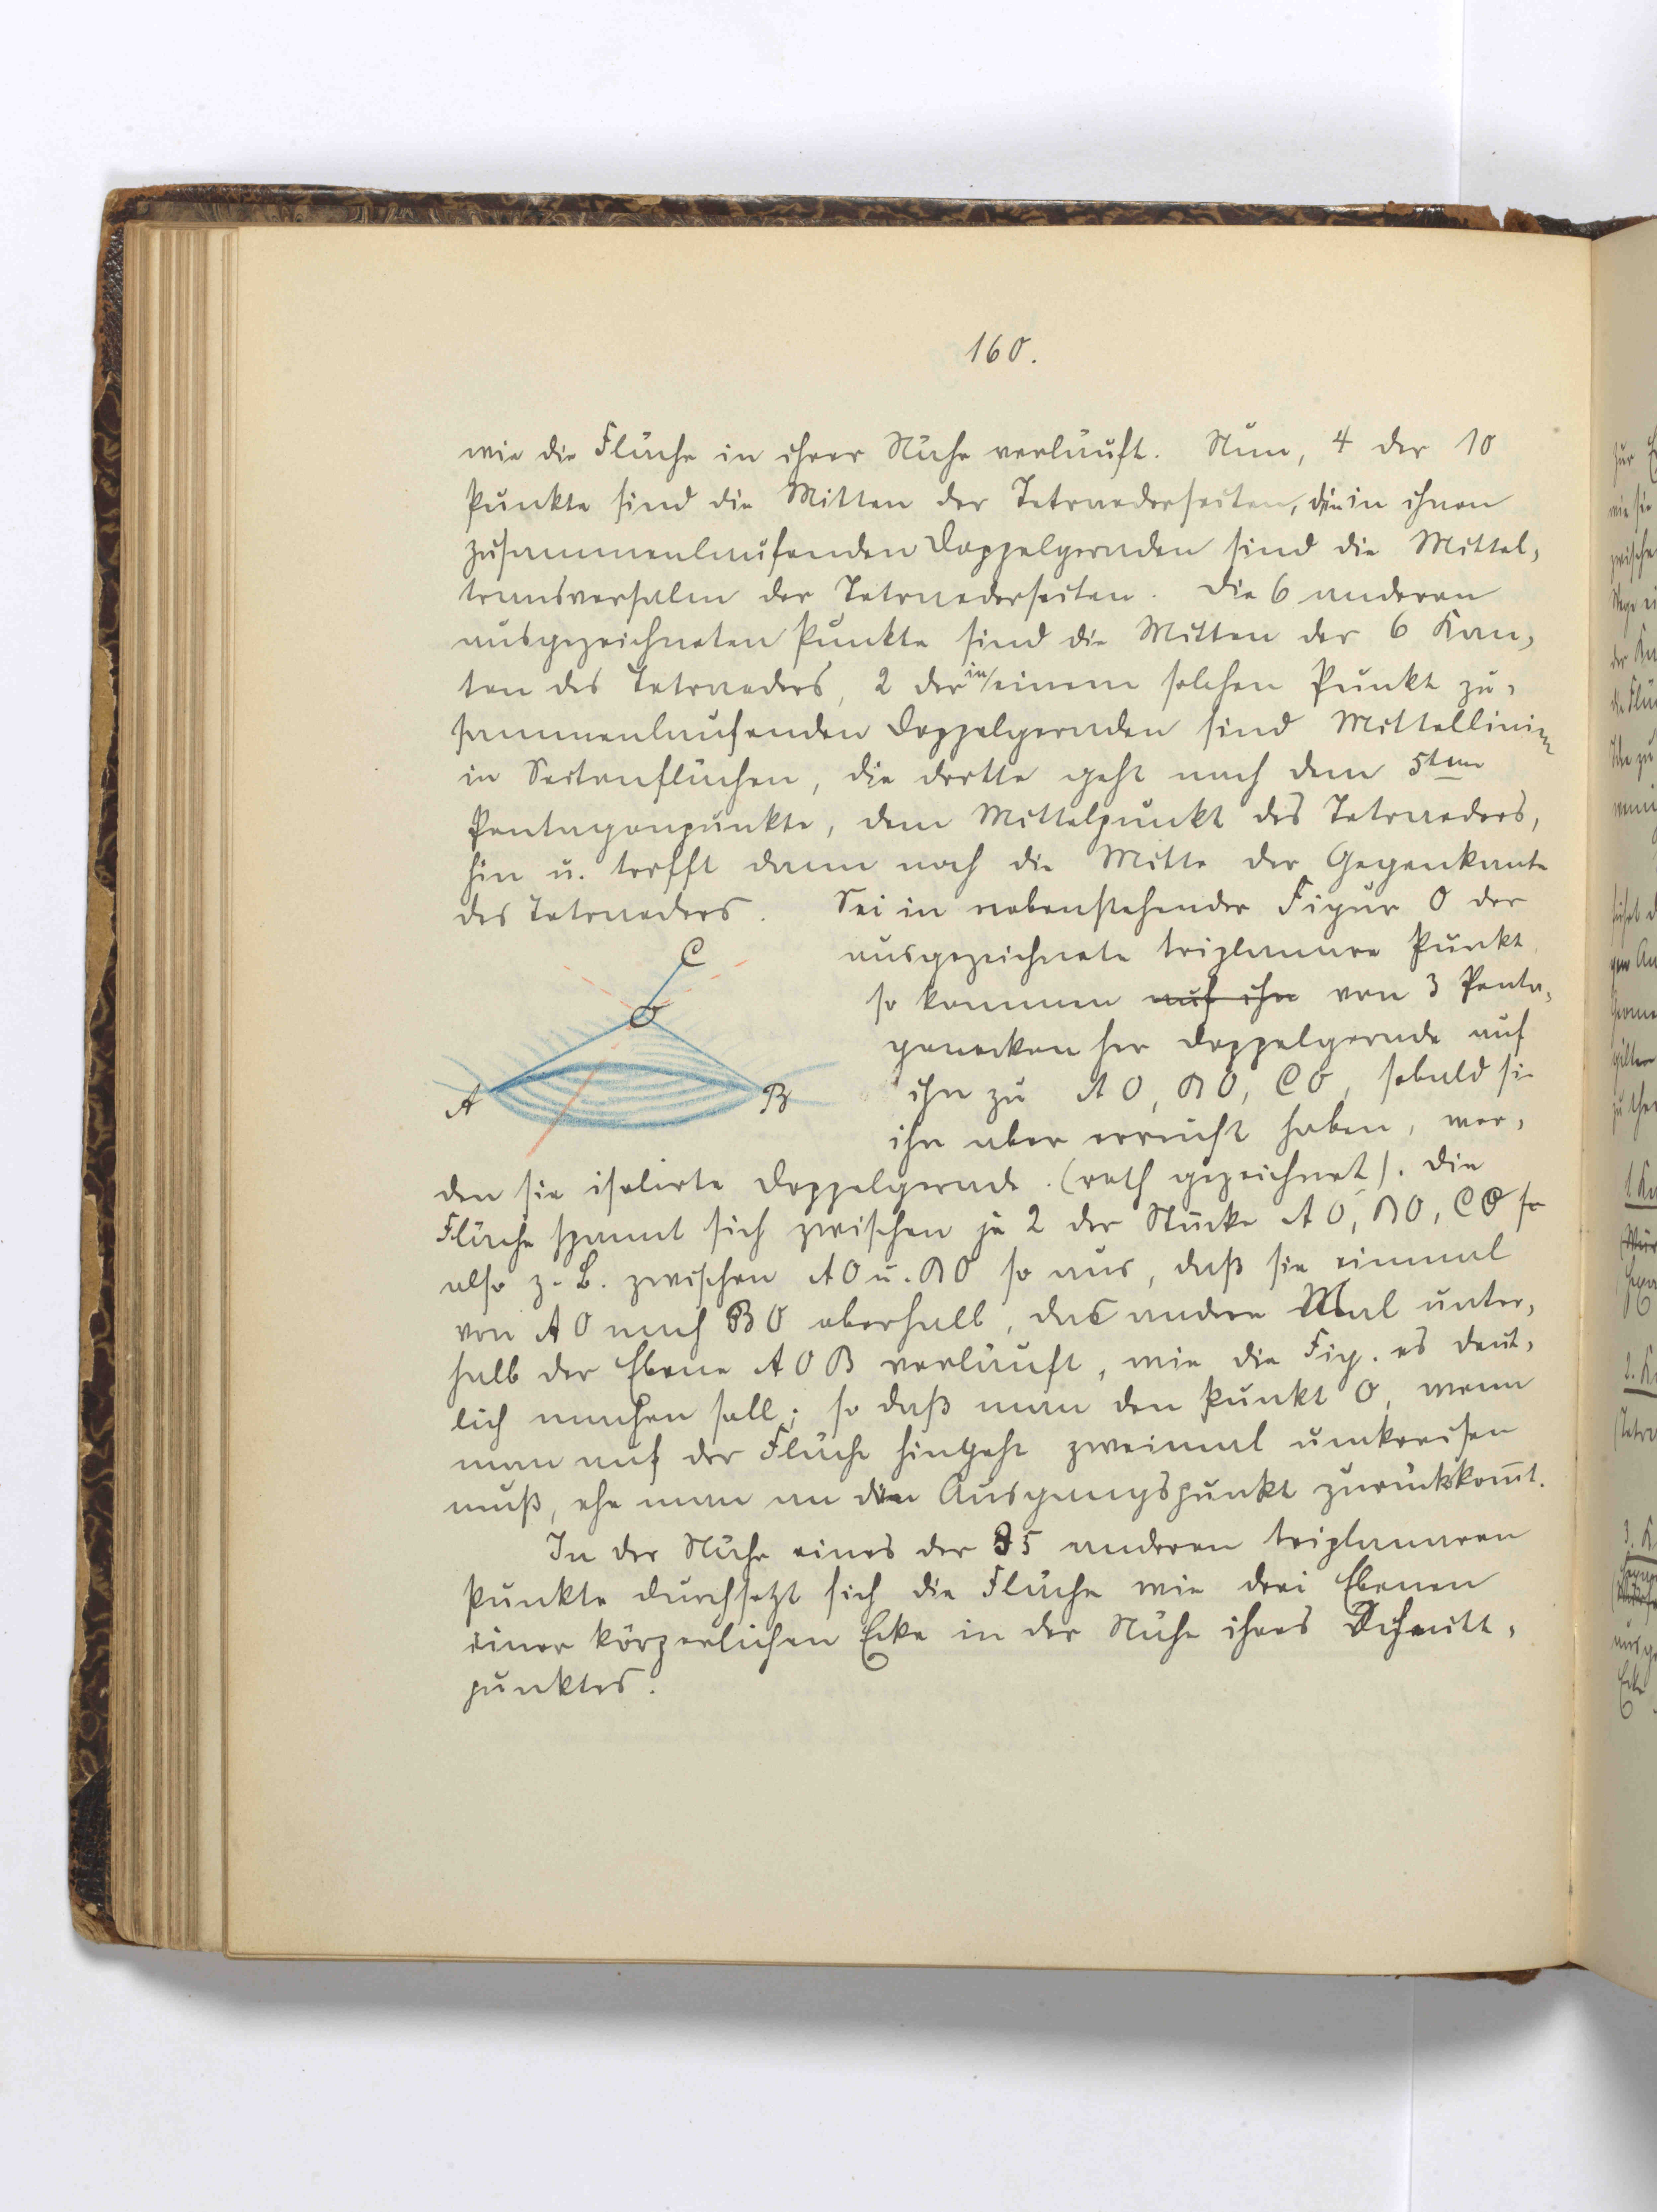 160.
wie die Fläche in ihrer Nähe verläuft. Nun, 4 der 10
Punkte sind die Mitten der Tetraederseiten, die in ihnen
zusammenlaufenden Doppelgeraden sind die Mittel-
transversalen der Tetraederseiten. Die 6 anderen
ausgezeichneten Punkte sind die Mitten der 6 Kan-
ten des Tetraeders, 2 der in einem solchen Punkt zu-
sammenlaufenden Doppelgeraden sind Mittellinien
in Seitenflächen, die dritte geht nach dem 5ten
Pentagonpunkte, dem Mittelpunkt des Tetraeders,
hin u. trifft dann noch die Mitte der Gegenkante
des Tetraeders. Sei in nebenstehender Figur O der
ausgezeichnete triplanare Punkt
so kommen auf ihn von 3 Penta-
gonecken her Doppelgerade auf
ihn zu AO, BO, CO, sobald sie
ihn aber erreicht haben, wer-
C
O
A
B
den sie isolirte Doppelgerade (roth gezeichnet). Die
Fläche spannt sich zwischen je 2 der Stücke AO, BO, CO so
also z. B. zwischen AO u. BO so aus, daß sie einmal
von AO nach BO oberhalb, das andere Mal unter-
halb der Ebene AOB verläuft, wie die Fig. es deut-
lich machen soll; so daß man den Punkt O, wenn
man auf der Fläche hingeht zweimal umkreisen
muß, ehe man an den Ausgangspunkt zurückkom̅t.
In der Nähe eines der 35 anderen triplanaren
Punkte durchsetzt sich die Fläche wie drei Ebenen
einer körperlichen Ecke in der Nähe ihres Schnitt-
punktes.